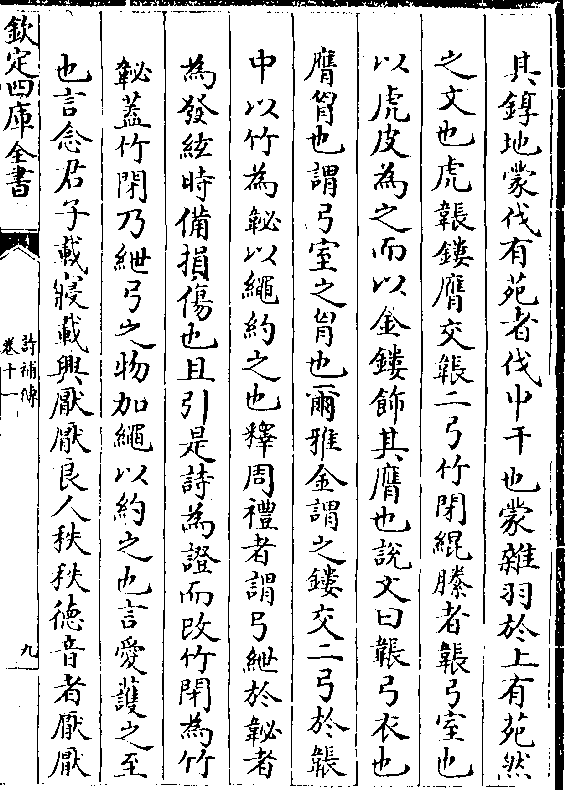 其鐏地蒙伐有苑者伐中干也蒙雜羽於上有苑然
之文也虎韔鏤膺交韔二弓竹閉緄縢者韔弓室也
以虎皮為之而以金鏤飾其膺也說文曰韔弓衣也
膺胷也謂弓室之胷也爾雅金謂之鏤交二弓於韔
中以竹為䪐以繩約之也釋周禮者謂弓紲於䪐者
為發絃時備損傷也且引是詩為證而改竹閉為竹
䪐蓋竹閉乃紲弓之物加繩以約之也言愛護之至
也言念君子載寢載興厭厭良人秩秩德音者厭厭
欽定四庫全書
詩補傳
卷十一
九